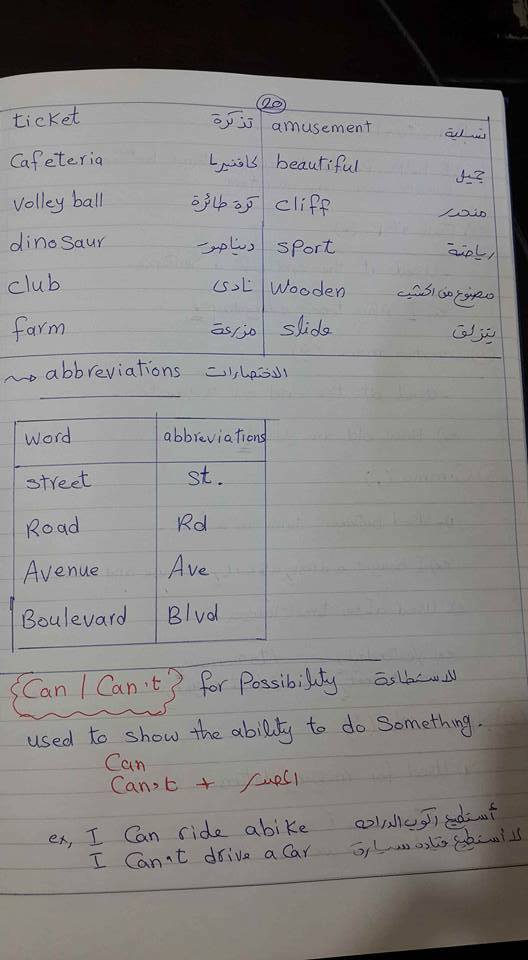 20
ticket تذكرة amusement تسلية
Cafeteria كافتيريا beautiful جميل
volley ball كرة طائرة cliff منحدر
dinosaur ديناصور sport رياضة
club نادى wooden مصنوع من الخشب
farm مزرعة slide يتزلق
abbreviations الاختصارات
word abbreviations
street st.
Road Rd
Avenue Ave
Boulevard Blvd
Can / Can't for Possibility للاستطاعة
used to show the ability to do something.
Can
Can't + المصدر
ex, I Can ride abike أستطيع ركوب الدراجه
I Can't drive a Car لا أستطيع قياده سيارة